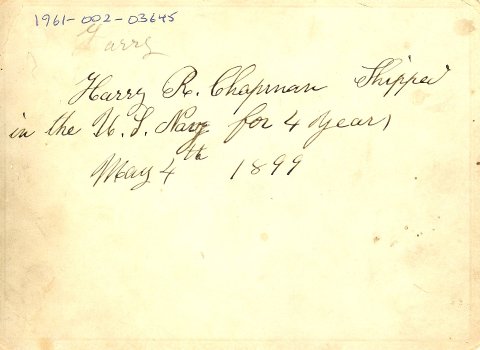 1961-002-03645
Harry
Harry R. Chapman Shipped
in the U.S. Navy for 4 years
May 4th 1899